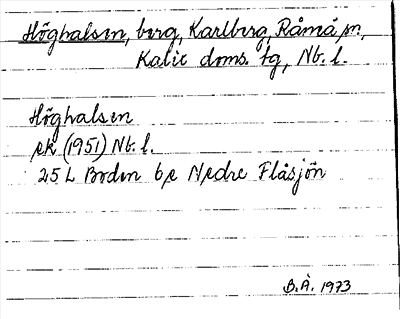 Höghalsen, berg, Karlberg, Råmå sn,
Kalix doms. tg, Nb. l.
Höghalsen
ek (1951) Nb. l.
25 L Boden b e Nedre Flåsjön
B.Å. 1973